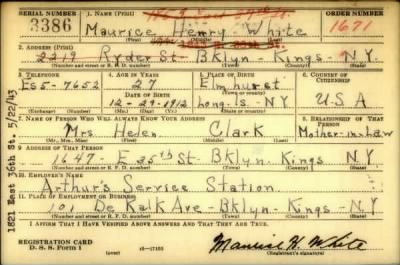 SERIAL NUMBER 1. NAME (Print) ORDER NUMBER
3386 Maurice Henry White 1671
(First) (Middle) (Last)
2. ADDRESS (Print)
2219 Ryder St- BKlyn- Kings- N.Y.
(Number and street or R. F. D. number) (Town) (County) (State)
3. TELEPHONE 4. AGE IN YEARS 5. PLACE OF BIRTH 6. COUNTRY OF CITIZENSHIP
Es5-7652 27 Elmhurst
DATE OF BIRTH (Town or county)
12-29-1912 Long. Is. N.Y. U.S.A
(Exchange) (Number) (Mo.) (Day) (Yr.) (State or country)
7. NAME OF PERSON WHO WILL ALWAYS KNOW YOUR ADDRESS 8. RELATIONSHIP OF THAT PERSON
Mrs. Helen Clark Mother-in-Law
(Mr., Mrs., Miss) (First) (Middle) (Last)
9. ADDRESS OF THAT PERSON
1647- E 35th St- BKlyn. Kings N.Y
(Number and street or R. F. D. number) (Town) (County) (State)
10. EMPLOYER'S NAME
Arthur's Service Station
11. PLACE OF EMPLOYMENT OR BUSINESS
101 De Kalk Ave- BKlyn- Kings- N.Y
(Number and street or R. F. D. number) (Town) (County) (State)
I AFFIRM THAT I HAVE VERIFIED ABOVE ANSWERS AND THAT THEY ARE TRUE.
REGISTRATION CARD
D. S. S. FORM 1
(over) 16-17105
Maurice H. White
(Registrant's signature)
1821 East 36th St. 5/22/43